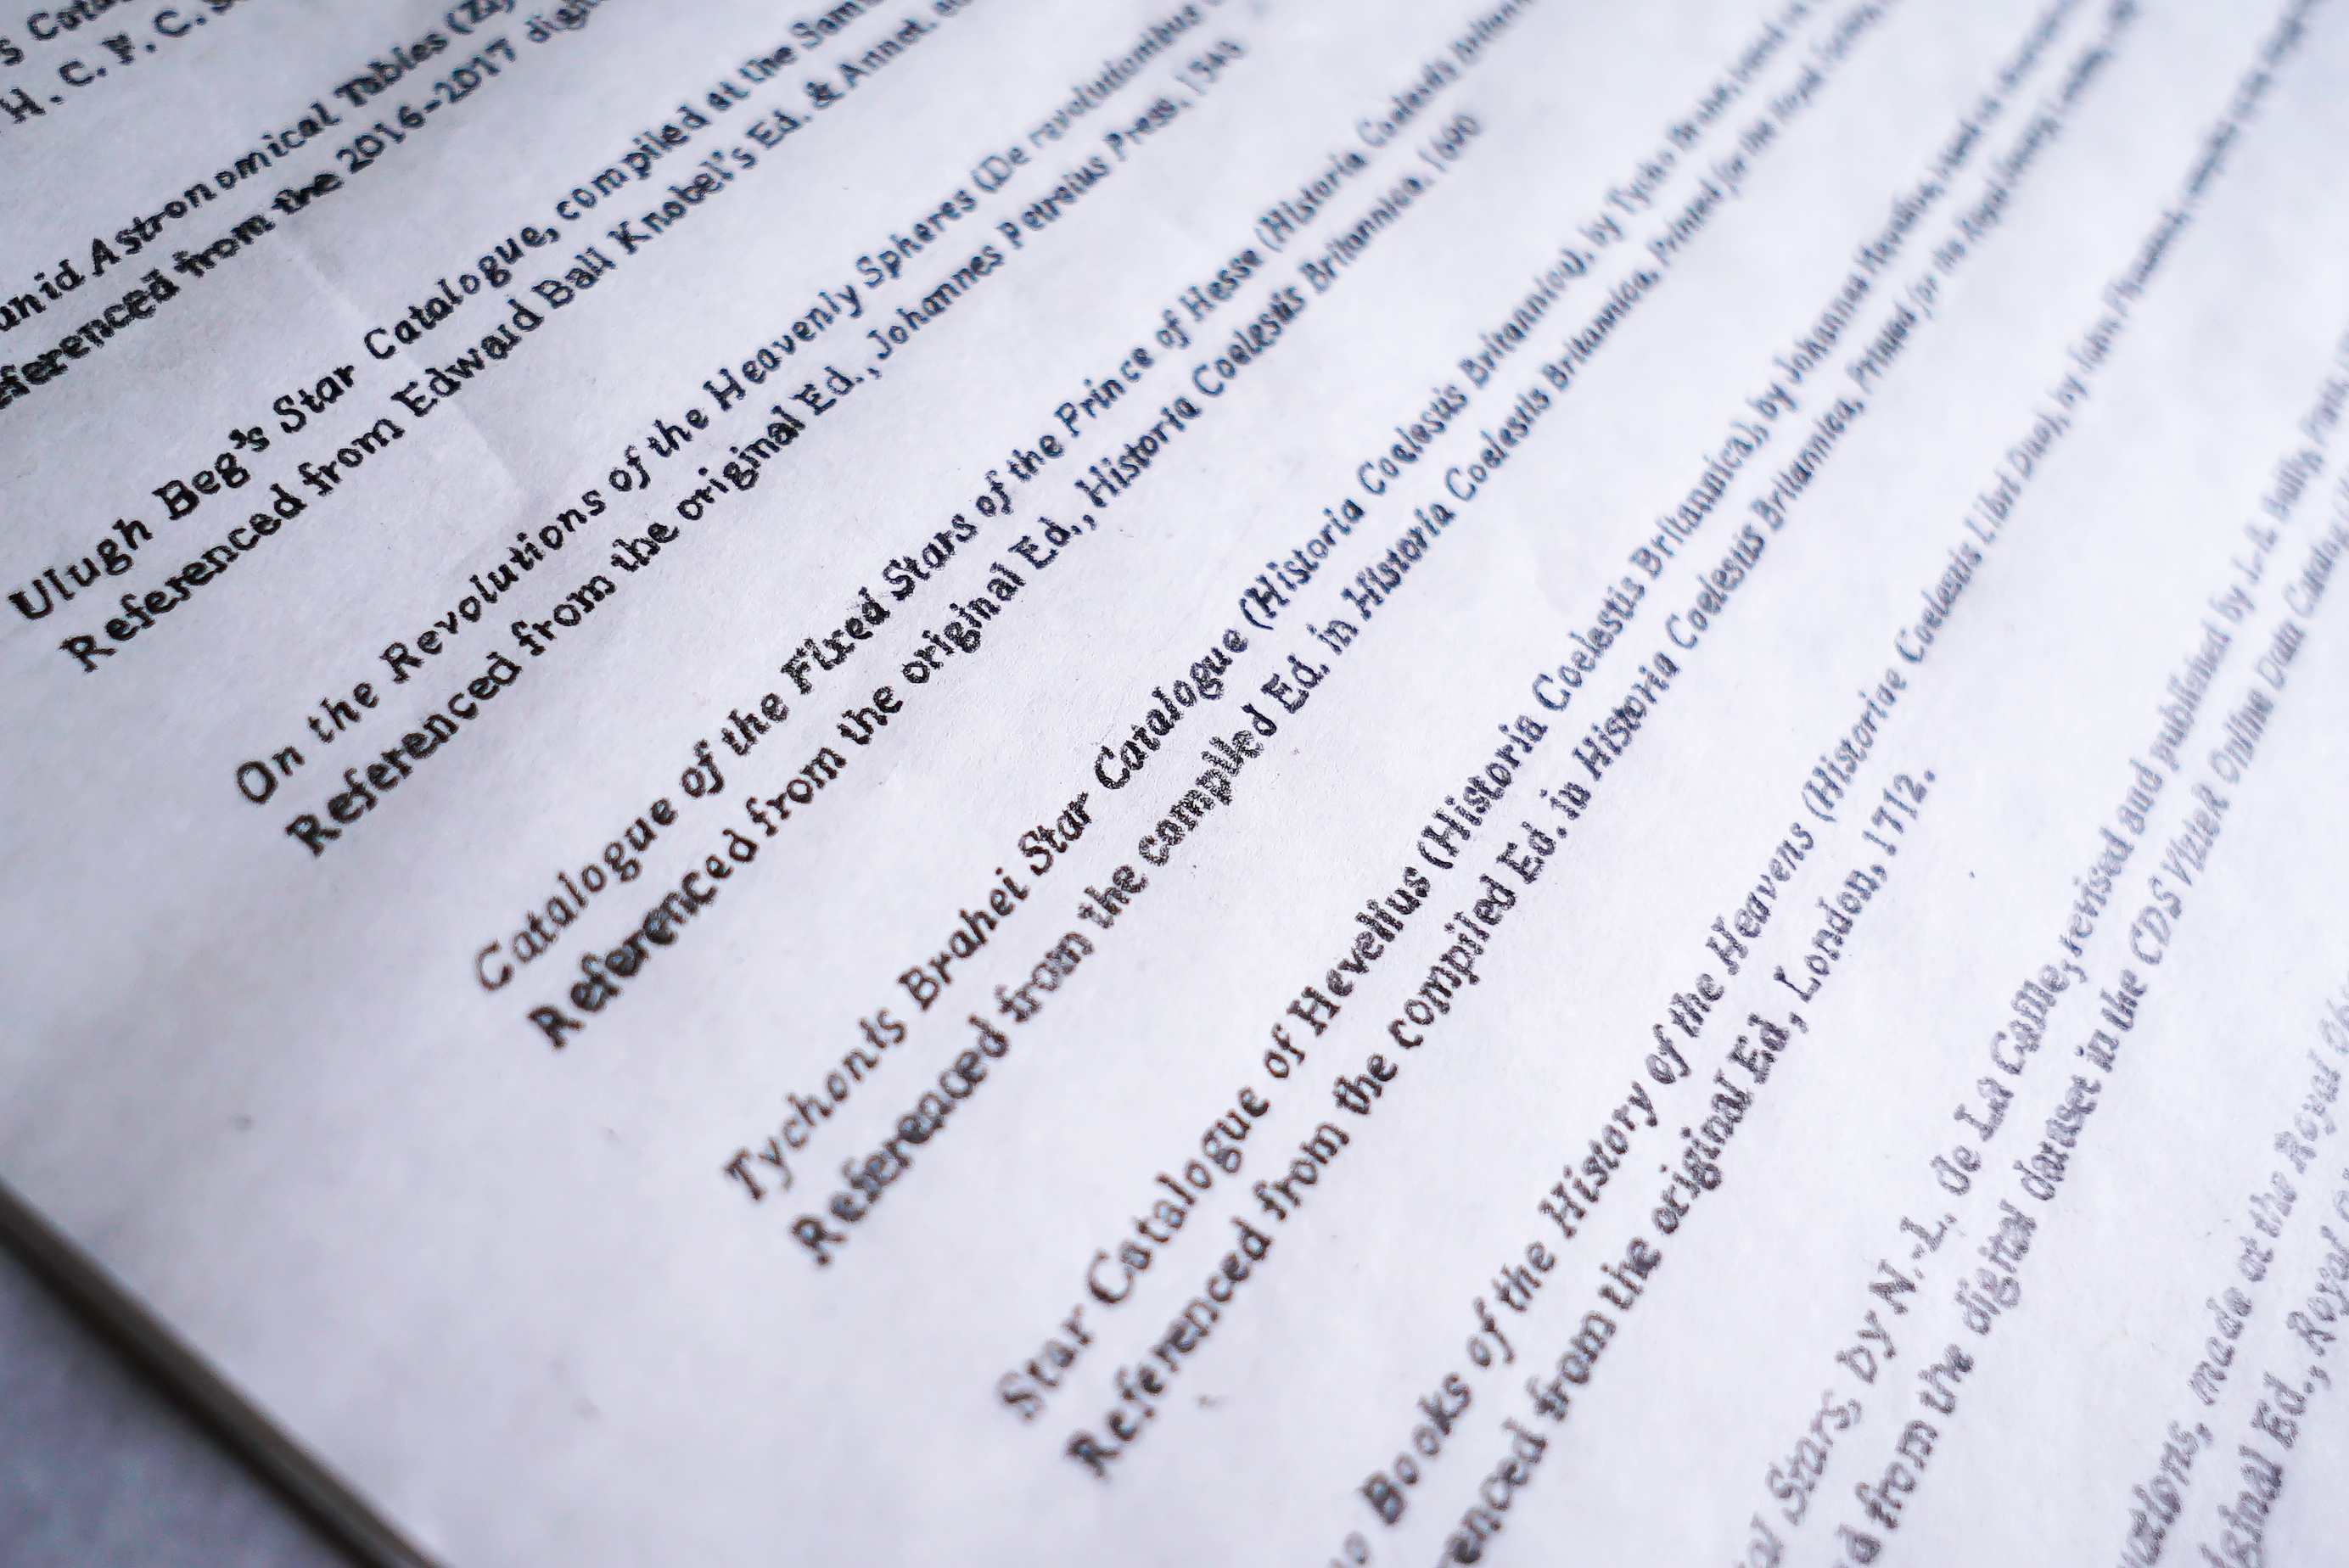 H. C. F. C.
Astronomical Tables
from the 2016-2017
Ulugh Beg's Star Catalogue, compiled at the
Referenced from Edward Ball Knobel's Ed. & Annet.
On the Revolutions of the Heavenly Spheres (De revolutionibus
Referenced from the original Ed., Johannes Petreius Press, 1543
Catalogue of the Fixed Stars of the Prince of Hesse (Historia Coelestis
Referenced from the original Ed., Historia Coelestis Britannica, 1690
Tychonis Brahei Star Catalogue (Historia Coelestis Britannica), by Tycho
Referenced from the compiled Ed. in Historia Coelestis Britannica, Printed for the Royal
Star Catalogue of Hevelius (Historia Coelestis Britannica), by Johannes
Referenced from the compiled Ed. in Historia Coelestis Britannica, Printed for the Royal
Books of the History of the Heavens (Historiae Coelestis Libri Duo), by John
from the original Ed., London, 1712.
Stars, by N.-L. de La Caille, revised and published by
from the digital dataset in the CDS VizieR Online Data
made at the Royal
Ed., Royal